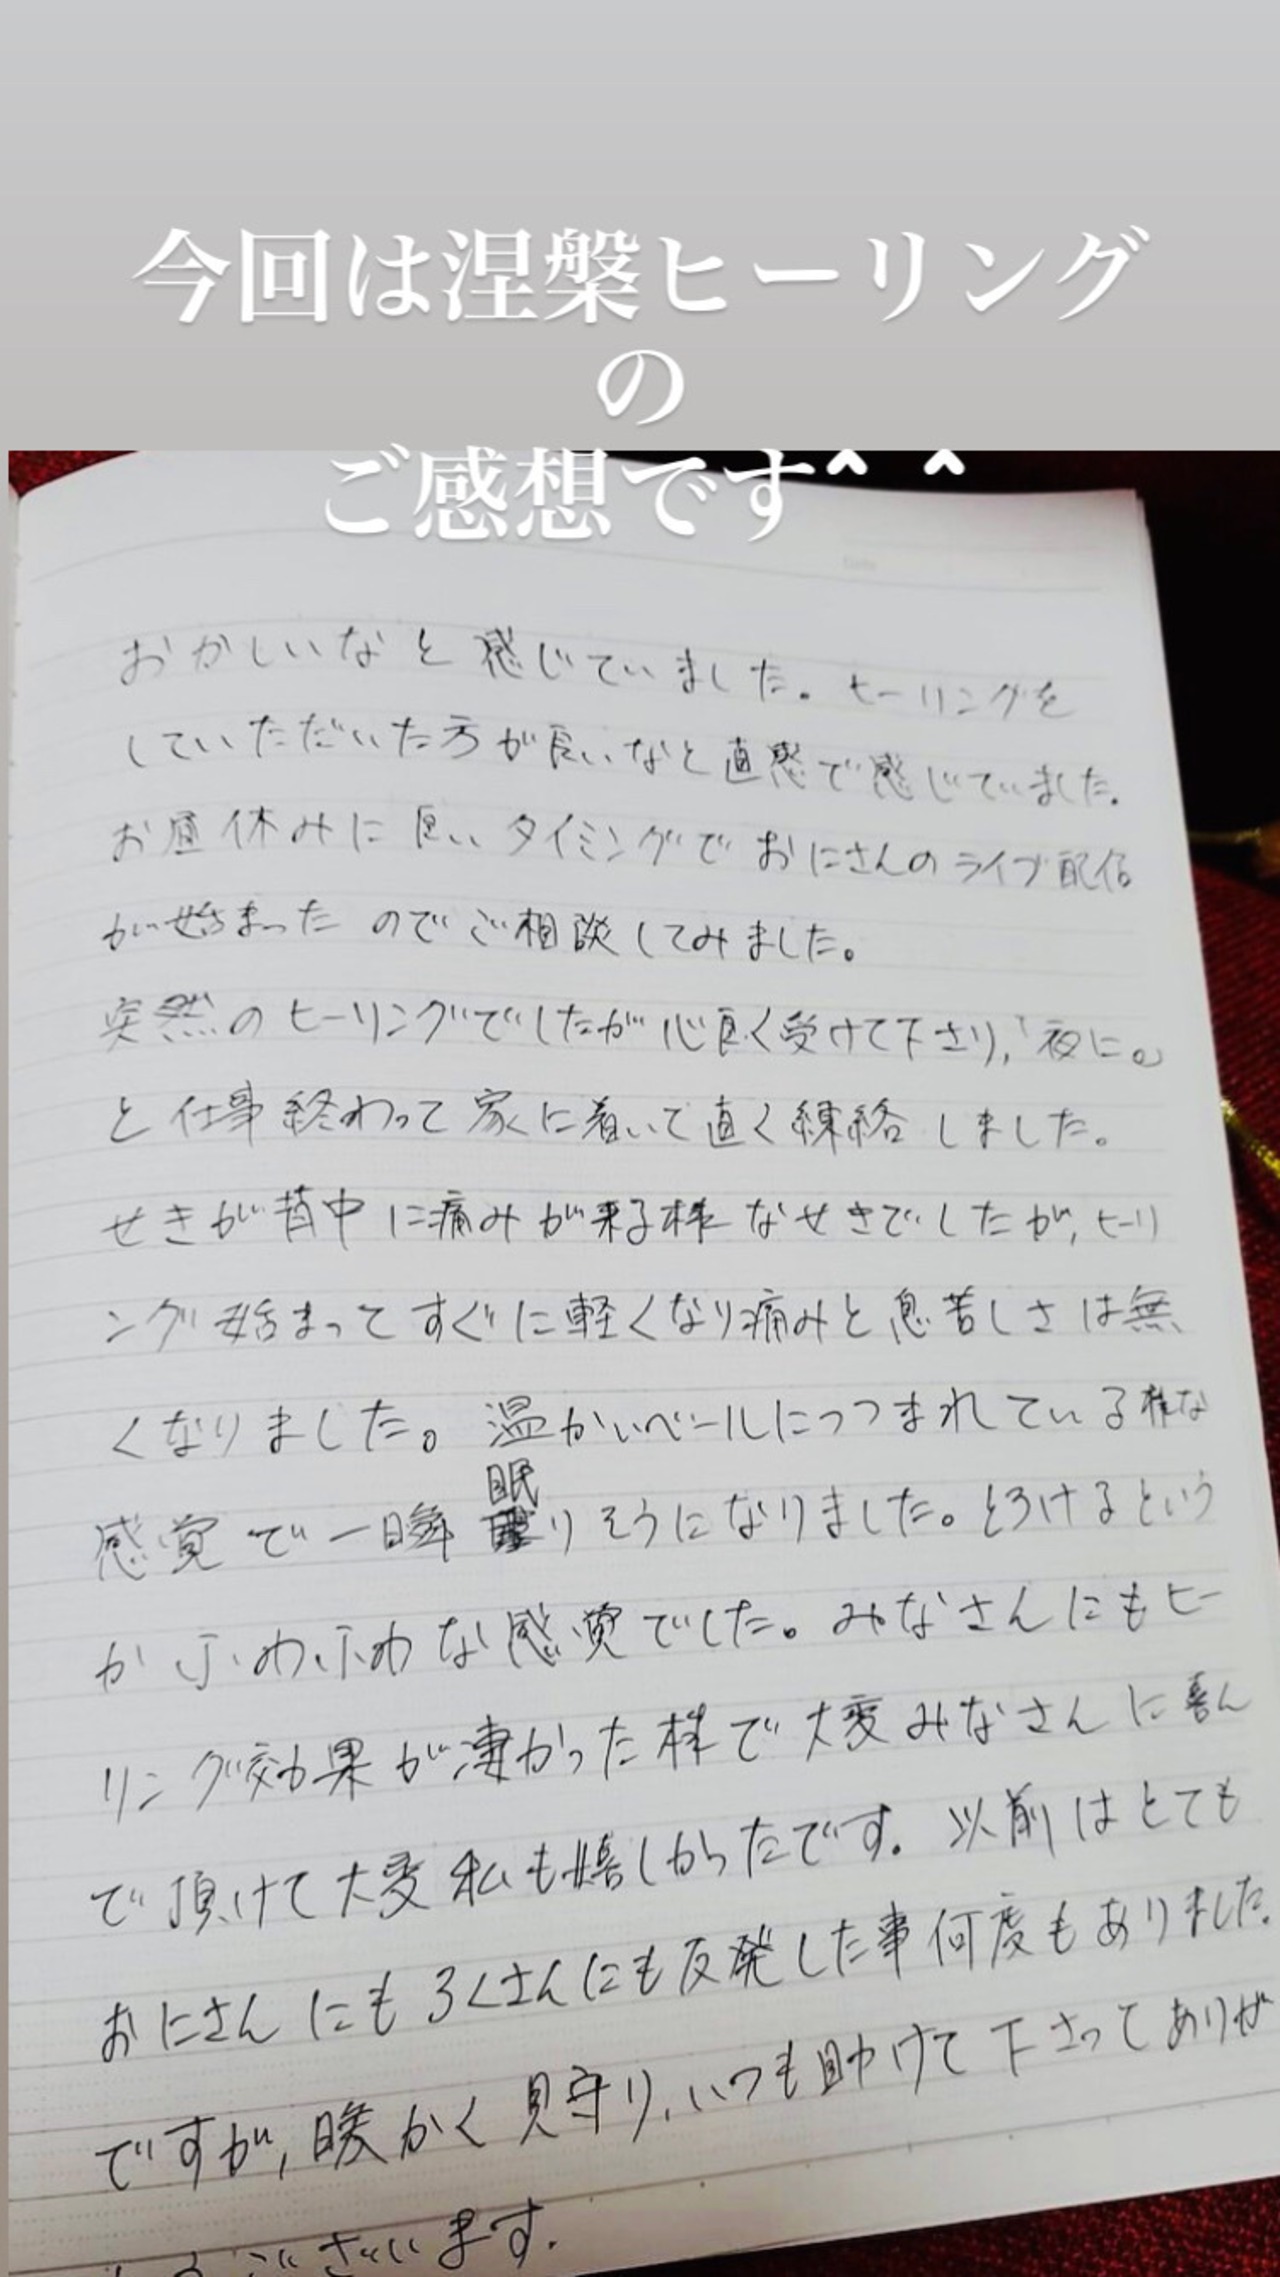 今回は涅槃ヒーリング
の
ご感想です^ ^
おかしいなと感じていました。ヒーリングを
していただいた方が良いなと直感で感じていました。
お昼休みに良いタイミングでおにさんのライブ配信
が始まったのでご相談してみました。
突然のヒーリングでしたが心良く受けて下さり,「夜に。」
と仕事終わって家に着いて直ぐ練絡しました。
せきが背中に痛みが来る様なせきでしたが,ヒーリ
ング始まってすぐに軽くなり痛みと息苦しさは無
くなりました。温かいベールにつつまれている様な
感覚で一瞬眠りそうになりました。とろけるという
かふわふわな感覚でした。みなさんにもヒー
リング効果が凄かった様で大変みなさんに喜ん
で頂けて大変私も嬉しかったです。以前はとても
おにさんにもろくさんにも反発した事何度もありました。
ですが,暖かく見守り,いつも助けて下さってありが
とうございます.